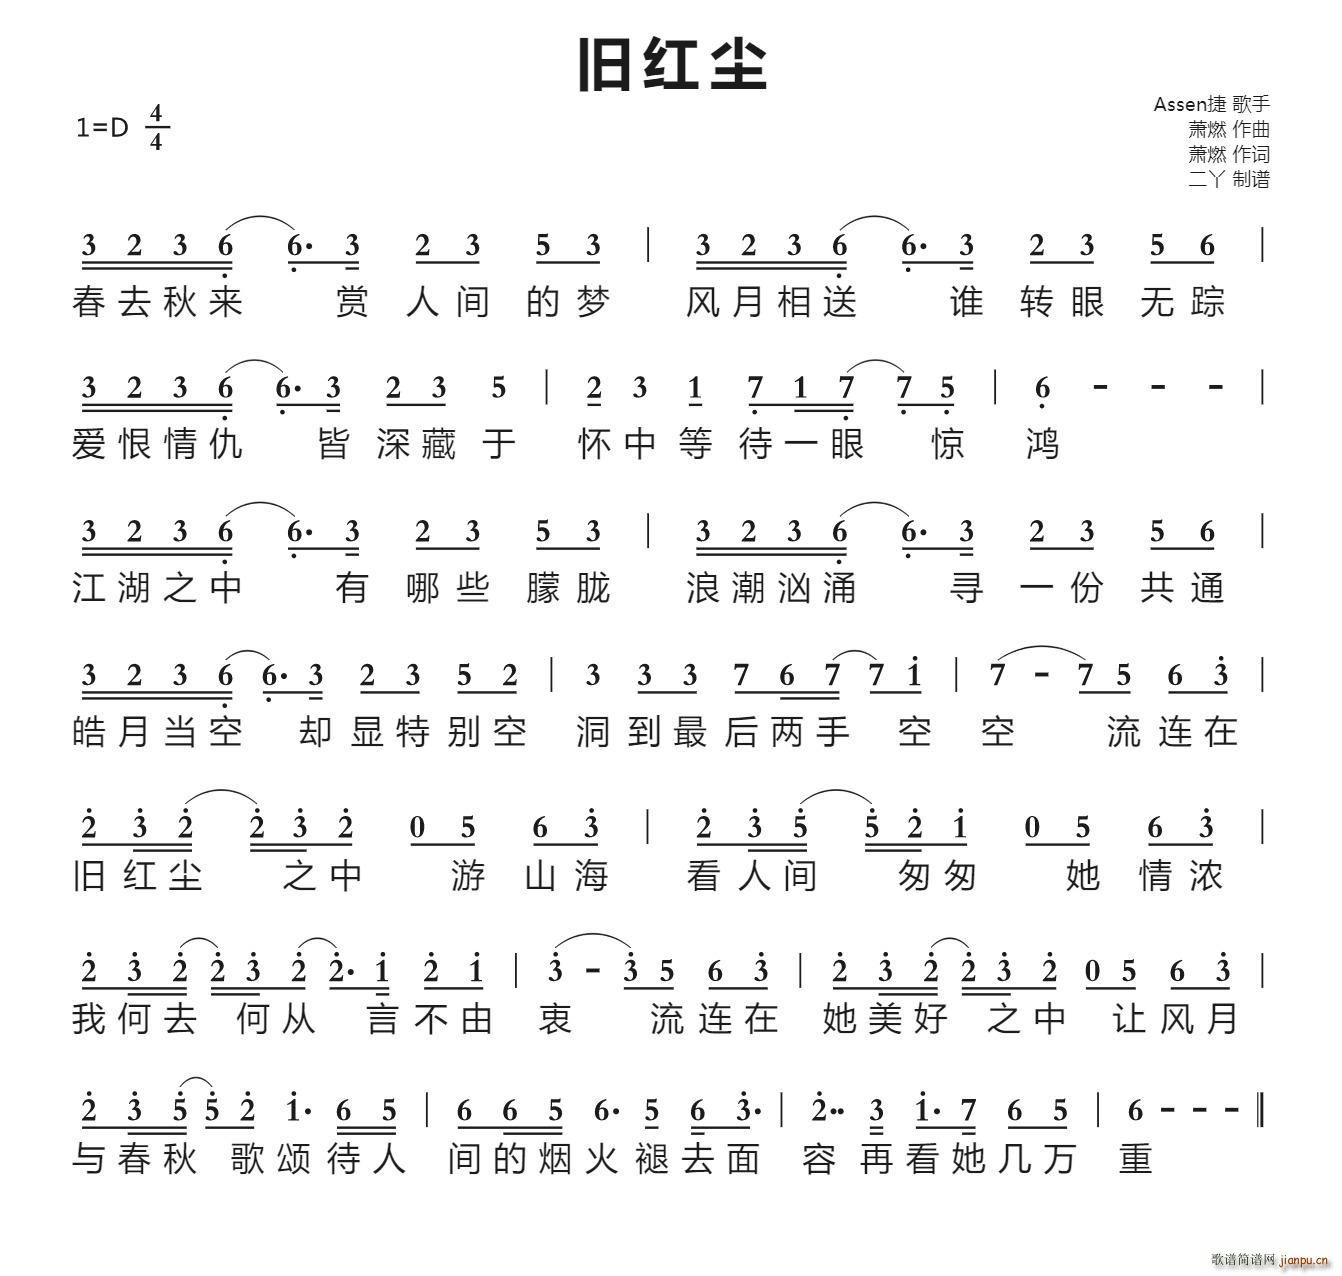 旧红尘
1=D 4/4
Assen捷 歌手
萧燃 作曲
萧燃 作词
二丫 制谱
3 2 3 6 6· 3 2 3 5 3 | 3 2 3 6 6· 3 2 3 5 6 |
春去秋来 赏人间的梦 风月相送 谁转眼无踪
3 2 3 6 6· 3 2 3 5 | 2 3 1 7 1 7 7 5 | 6 - - - |
爱恨情仇 皆深藏于 怀中等待一眼 惊 鸿
3 2 3 6 6· 3 2 3 5 3 | 3 2 3 6 6· 3 2 3 5 6 |
江湖之中 有哪些朦胧 浪潮汹涌 寻一份共通
3 2 3 6 6· 3 2 3 5 2 | 3 3 3 7 6 7 7 1 | 7 - 7 5 6 3 |
皓月当空 却显特别空 洞到最后两手 空 空 流连在
2 3 2 2 3 2 0 5 6 3 | 2 3 5 5 2 1 0 5 6 3 |
旧红尘 之中 游山海 看人间 匆匆 她情浓
2 3 2 2 3 2 2· 1 2 1 | 3 - 3 5 6 3 | 2 3 2 2 3 2 0 5 6 3 |
我何去 何从 言不由 衷 流连在 她美好 之中 让风月
2 3 5 5 2 1· 6 5 | 6 6 5 6· 5 6 3· | 2·· 3 1· 7 6 5 | 6 - - - ‖
与春秋 歌颂待人 间的烟火褪去面 容 再看她几万 重
歌谱简谱网 jianpu.cn